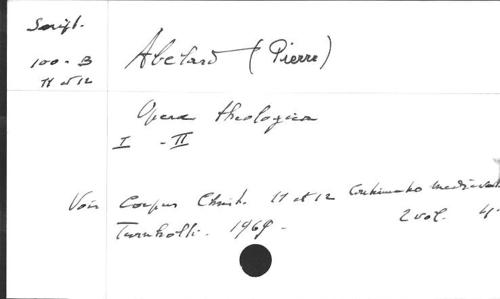 Script.
100-B
11 et 12
Abelard (Pierre)
Opera theologica
I - II
Voir Corpus Christ. 11 et 12 Continuatio mediaevalis
Turnholti. 1969.
2 vol. 4°